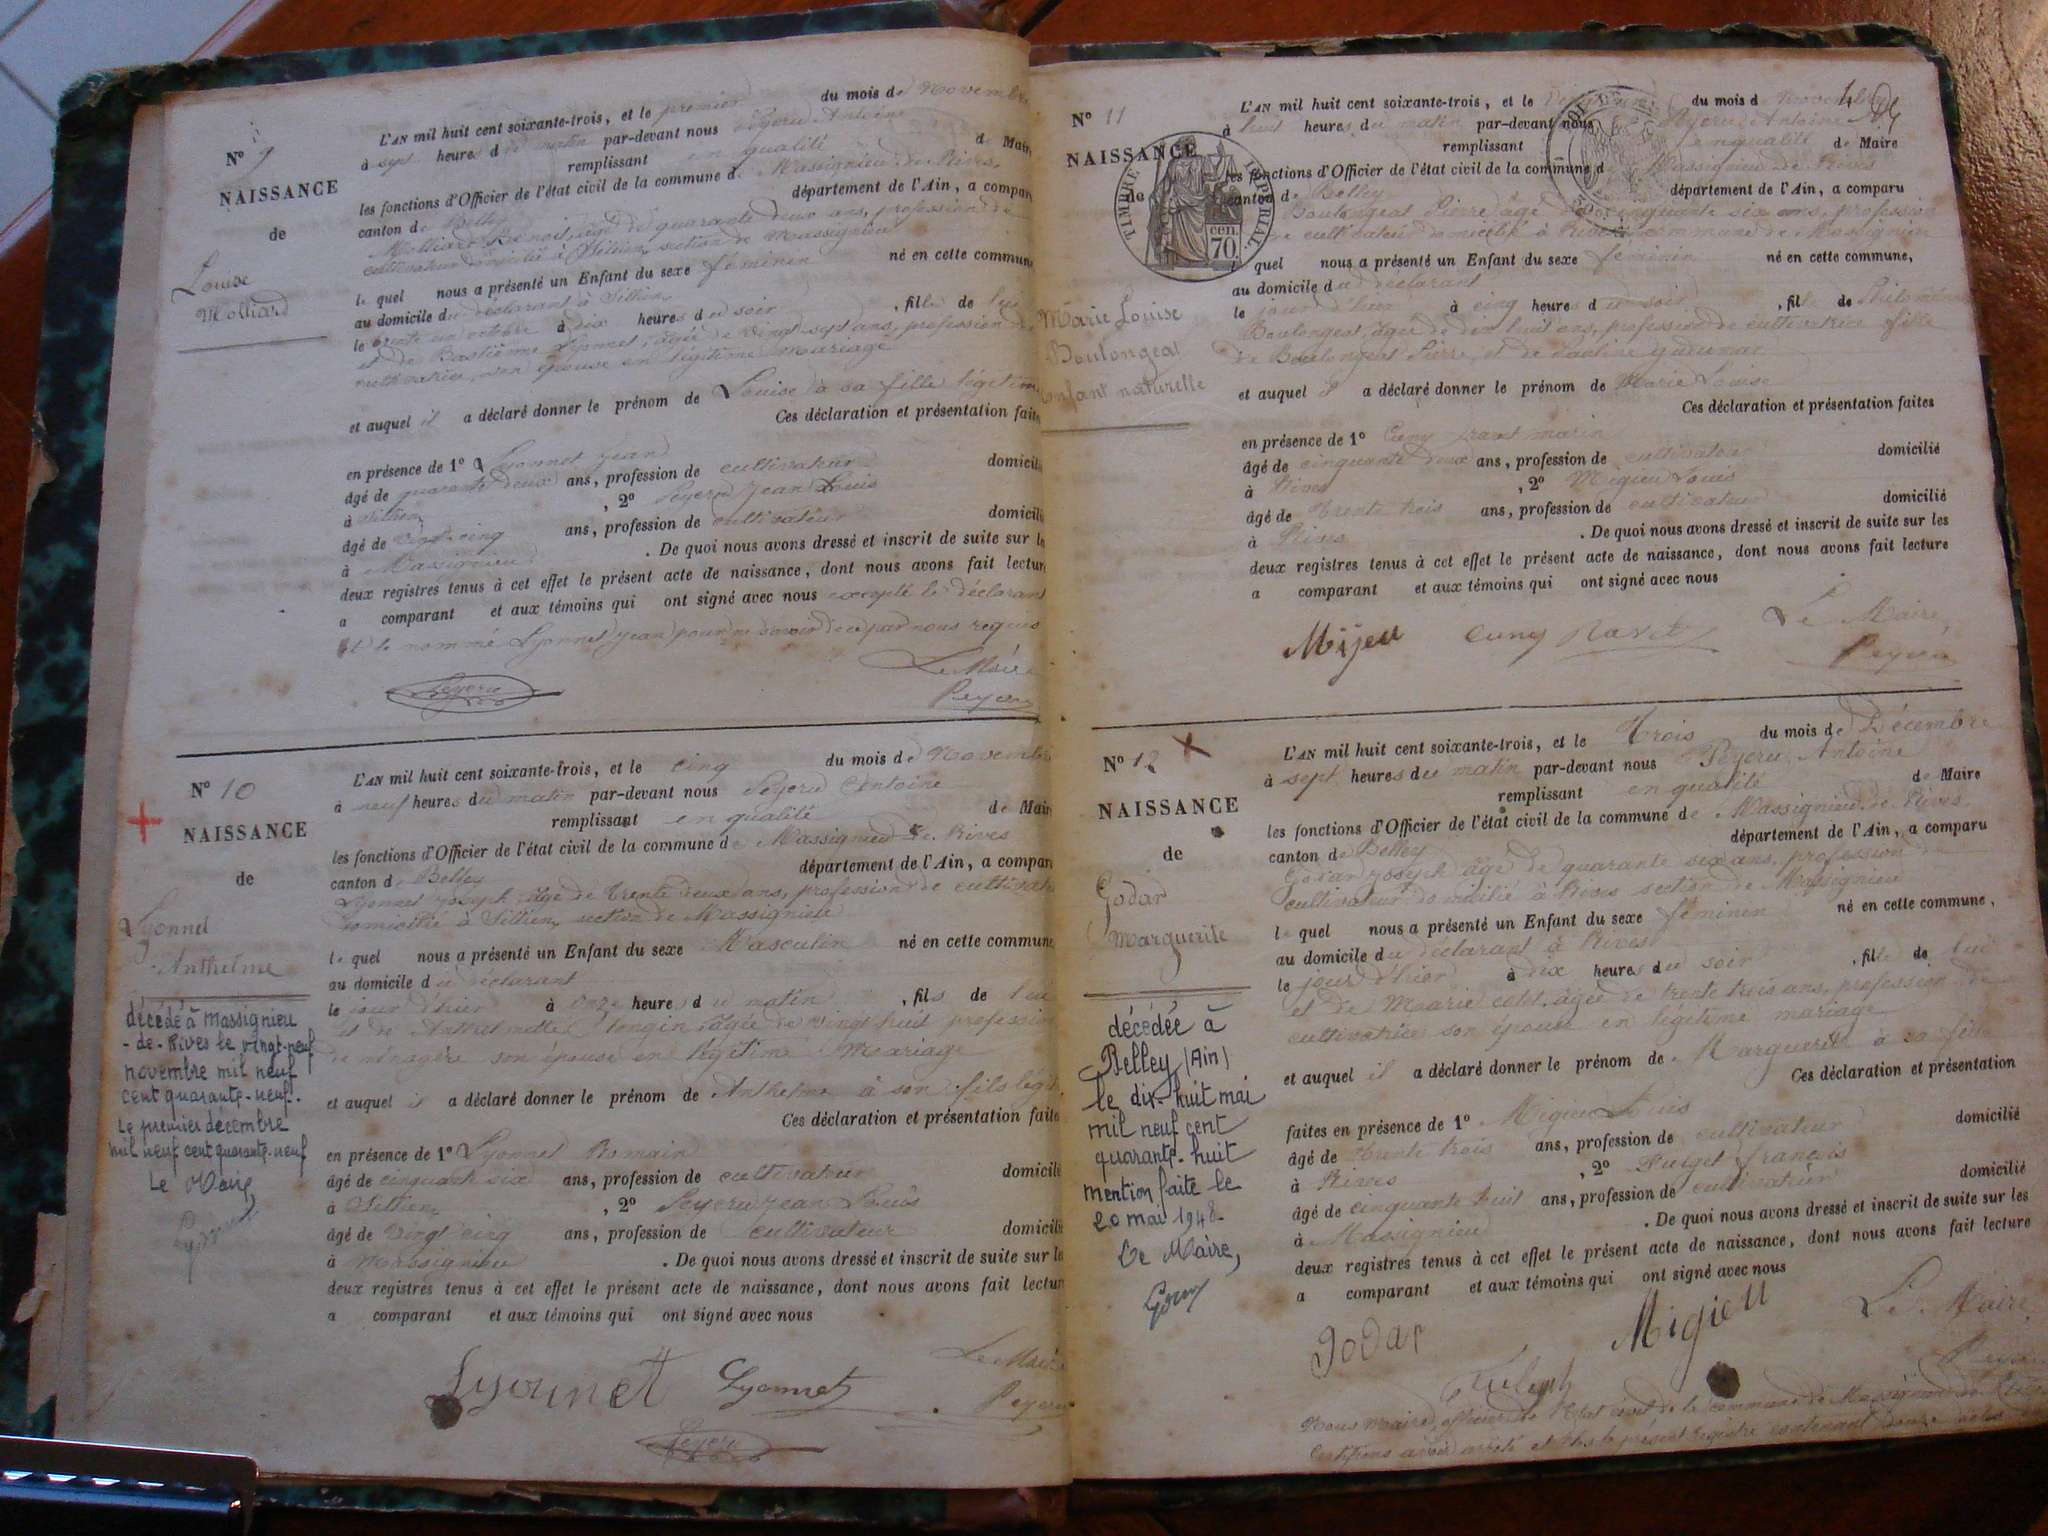 N° 9
NAISSANCE
de
Louise
Molliard
L'AN mil huit cent soixante-trois, et le premier du mois de Novembre
à sept heures du matin par-devant nous Peyeru Antoine
remplissant en qualité de Maire
les fonctions d'Officier de l'état civil de la commune de Massignieu de Rives
canton de Belley département de l'Ain, a comparu
Molliard Benoit, âgé de quarante deux ans, profession de
cultivateur domicilié à Sillien, section de Massignieu
le quel nous a présenté un Enfant du sexe féminin né en cette commune
au domicile du déclarant à Sillien
le trente un octobre à dix heures du soir , fille de lui
et de Bastienne Lyonnet, âgée de vingt sept ans, profession de
cultivatrice, son épouse en légitime mariage
et auquel il a déclaré donner le prénom de Louise à sa fille légitime
Ces déclaration et présentation faites
en présence de 1° Lyonnet Jean
âgé de quarante deux ans, profession de cultivateur domicilié
à Sillien , 2° Peyeru Jean Louis
âgé de vingt cinq ans, profession de cultivateur domicilié
à Massignieu . De quoi nous avons dressé et inscrit de suite sur les
deux registres tenus à cet effet le présent acte de naissance, dont nous avons fait lecture
a comparant et aux témoins qui ont signé avec nous excepté le déclarant
et le nommé Lyonnet Jean pour ne savoir de ce par nous requis
Le Maire
Peyeru Peyeru
N° 10
NAISSANCE
de
Lyonnet
Anthelme
décédé à Massignieu
-de-Rives le vingt-neuf
novembre mil neuf
cent quarante-neuf.
Le premier décembre
mil neuf cent quarante-neuf
Le Maire,
L'AN mil huit cent soixante-trois, et le cinq du mois de Novembre
à neuf heures du matin par-devant nous Peyeru Antoine
remplissant en qualité de Maire
les fonctions d'Officier de l'état civil de la commune de Massignieu de Rives
canton de Belley département de l'Ain, a comparu
Lyonnet Joseph âgé de trente deux ans, profession de cultivateur
domicilié à Sillien, section de Massignieu
le quel nous a présenté un Enfant du sexe Masculin né en cette commune
au domicile du déclarant
le jour d'hier à onze heures du matin , fils de lui
et de Anthelmette âgée de vingt huit profession
de ménagère son épouse en légitime Mariage
et auquel il a déclaré donner le prénom de Anthelme à son fils légit
Ces déclaration et présentation faites
en présence de 1° Lyonnet Romain
âgé de cinquante six ans, profession de cultivateur domicilié
à Sillien , 2° Peyeru Jean Louis
âgé de vingt cinq ans, profession de cultivateur domicilié
à Massignieu . De quoi nous avons dressé et inscrit de suite sur les
deux registres tenus à cet effet le présent acte de naissance, dont nous avons fait lecture
a comparant et aux témoins qui ont signé avec nous
Le Maire
Lyonnet Lyonnet Peyeru
Peyeru
N° 11
NAISSANCE
de
TIMBRE IMPERIAL
cen. 70
Marie Louise
Boulongeat
enfant naturelle
L'AN mil huit cent soixante-trois, et le du mois de Novembre
à huit heures du matin par-devant nous Peyeru Antoine
remplissant en qualité de Maire
les fonctions d'Officier de l'état civil de la commune de Massignieu de Rives
canton de Belley département de l'Ain, a comparu
Boulongeat Pierre âgé de cinquante six ans, profession
de cultivateur domicilié à Rives commune de Massignieu
le quel nous a présenté un Enfant du sexe féminin né en cette commune,
au domicile du déclarant
le jour d'hier à cinq heures du soir , fille de Philomène
Boulongeat, âgée de dix huit ans, profession de cultivatrice fille
de Boulongeat Pierre, et de
et auquel il a déclaré donner le prénom de Marie Louise
Ces déclaration et présentation faites
en présence de 1° Cuny ravet marin
âgé de cinquante deux ans, profession de cultivateur domicilié
à Rives , 2° Migieu Louis
âgé de trente trois ans, profession de cultivateur domicilié
à Rives . De quoi nous avons dressé et inscrit de suite sur les
deux registres tenus à cet effet le présent acte de naissance, dont nous avons fait lecture
a comparant et aux témoins qui ont signé avec nous
Le Maire,
Mijeu Cuny Ravet Peyeru
N° 12
NAISSANCE
de
Godar
Marguerite
décédée à
Belley (Ain)
le dix-huit mai
mil neuf cent
quarante-huit
mention faite le
20 mai 1948.
Le Maire,
L'AN mil huit cent soixante-trois, et le Trois du mois de Décembre
à sept heures du matin par-devant nous Peyeru Antoine
remplissant en qualité de Maire
les fonctions d'Officier de l'état civil de la commune de Massignieu de Rives
canton de Belley département de l'Ain, a comparu
Godar Joseph âgé de quarante six ans, profession de
cultivateur domicilié à Rives section de Massignieu
le quel nous a présenté un Enfant du sexe féminin né en cette commune,
au domicile du déclarant à Rives
le jour d'hier à dix heures du soir , fille de lui
et de Marie colet, âgée de trente trois ans, profession de
cultivatrice son épouse en légitime mariage
et auquel il a déclaré donner le prénom de Marguerite à sa fille
Ces déclaration et présentation
faites en présence de 1° Migieu Louis
âgé de trente trois ans, profession de cultivateur domicilié
à Rives , 2° françois
âgé de cinquante huit ans, profession de cultivateur domicilié
à Massignieu . De quoi nous avons dressé et inscrit de suite sur les
deux registres tenus à cet effet le présent acte de naissance, dont nous avons fait lecture
a comparant et aux témoins qui ont signé avec nous
Godar Migieu Le Maire
Peyeru
Nous maire, officier de l'état civil de la commune de Massignieu de Rives
Certifions avoir arrêté et clos le présent registre contenant douze actes